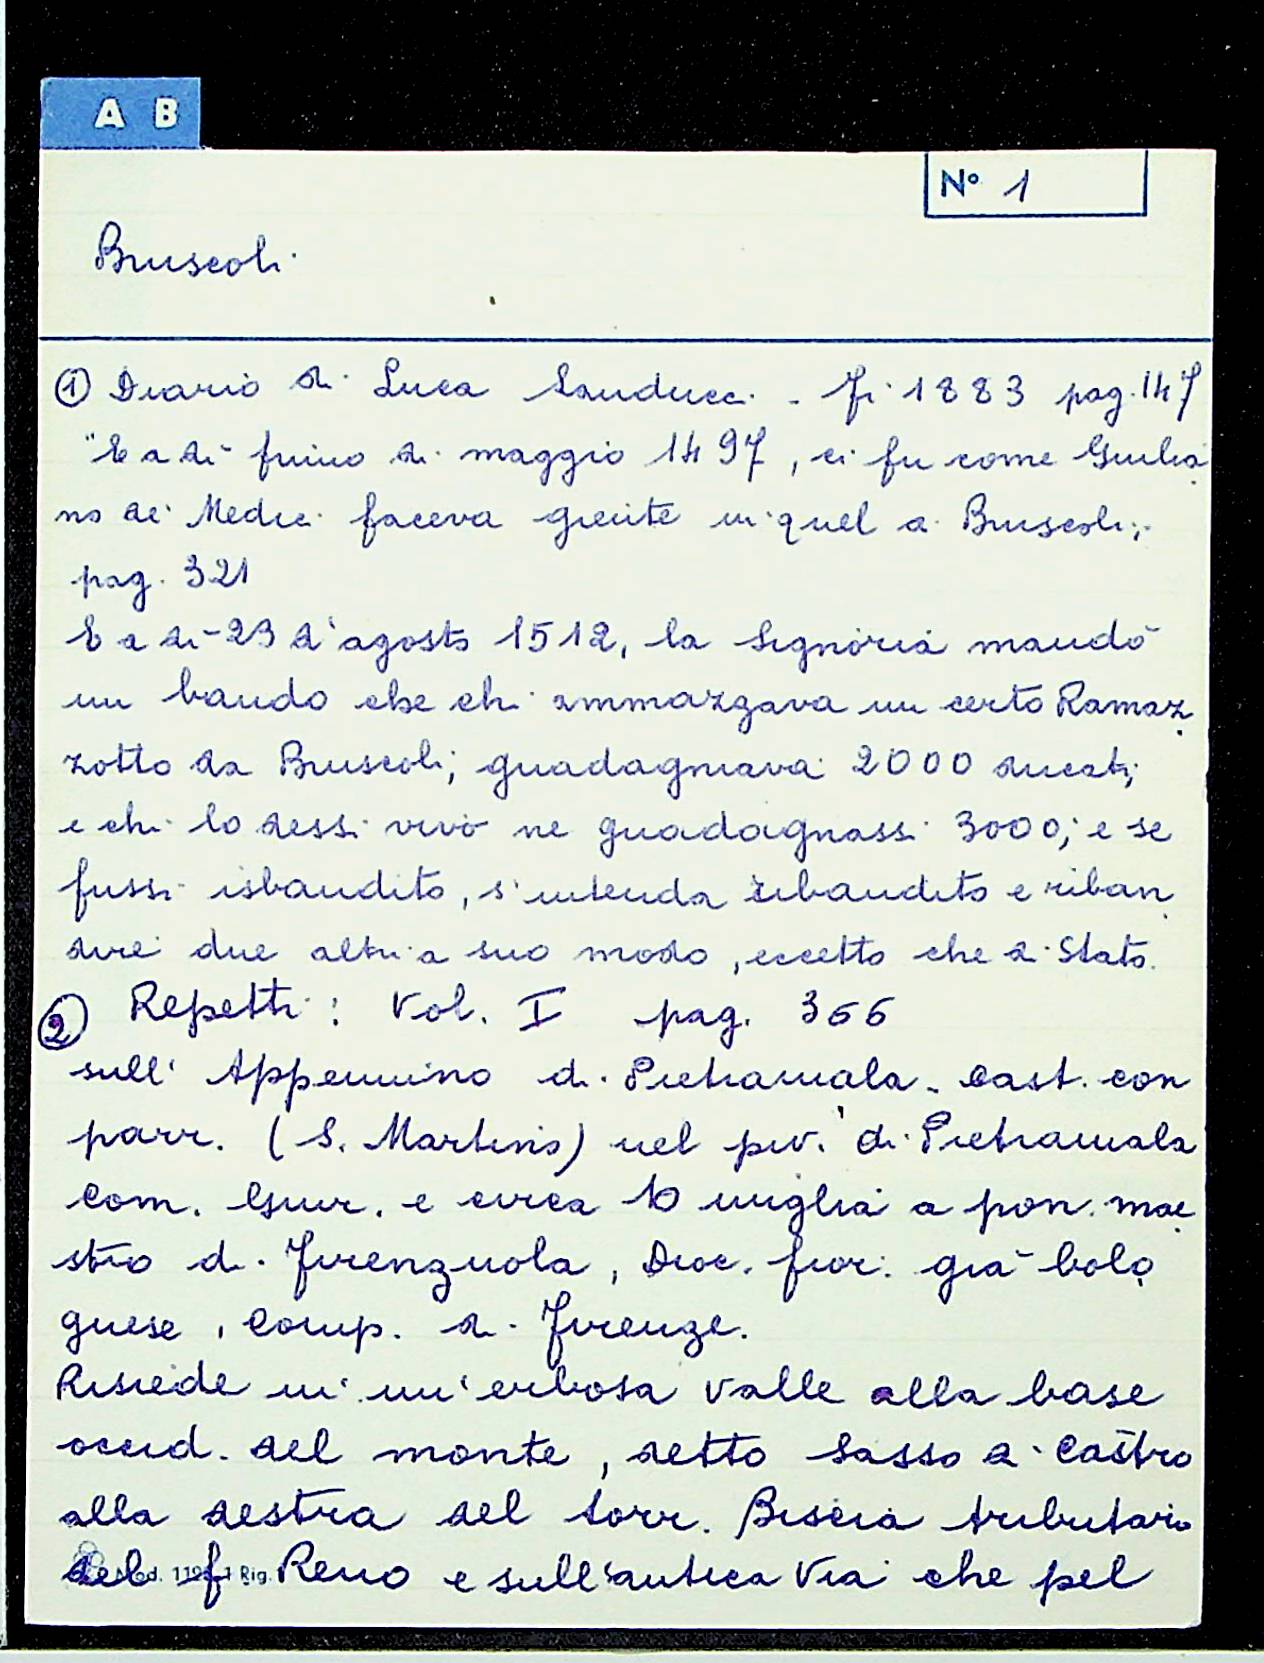 A B
N° 1
Bruscoli
① Diario di Luca Landucci - Fi 1883 pag. 147
"E a dì primo di maggio 1497, ci fu come Giulia
no de' Medici faceva giente in quel di Bruscoli;
pag. 321
E a dì 23 d'agosto 1512, la Signoria mandò
un bando che chi ammazzava un certo Ramaz
zotto da Bruscoli; guadagnava 2000 ducati;
e chi lo dessi vivo ne guadagnassi 3000; e se
fussi isbandito, s'intenda ribandito e riban
dire due altri a suo modo, eccetto che di Stato.
② Repetti: Vol. I pag. 366
sull' Appennino di Pietramala - Cast. con
parr. (S. Martino) nel piv. di Pietramala
Com. Giur. e circa 10 miglia a pon. mae
stro di Firenzuola, Dioc. fior. già bolo
gnese, Comp. di Firenze.
Risiede in un'erbosa valle alla base
occid. del monte, detto Sasso di Castro
alla destra del torr. Biscia tributario
del f. Reno e sull'antica via che pel